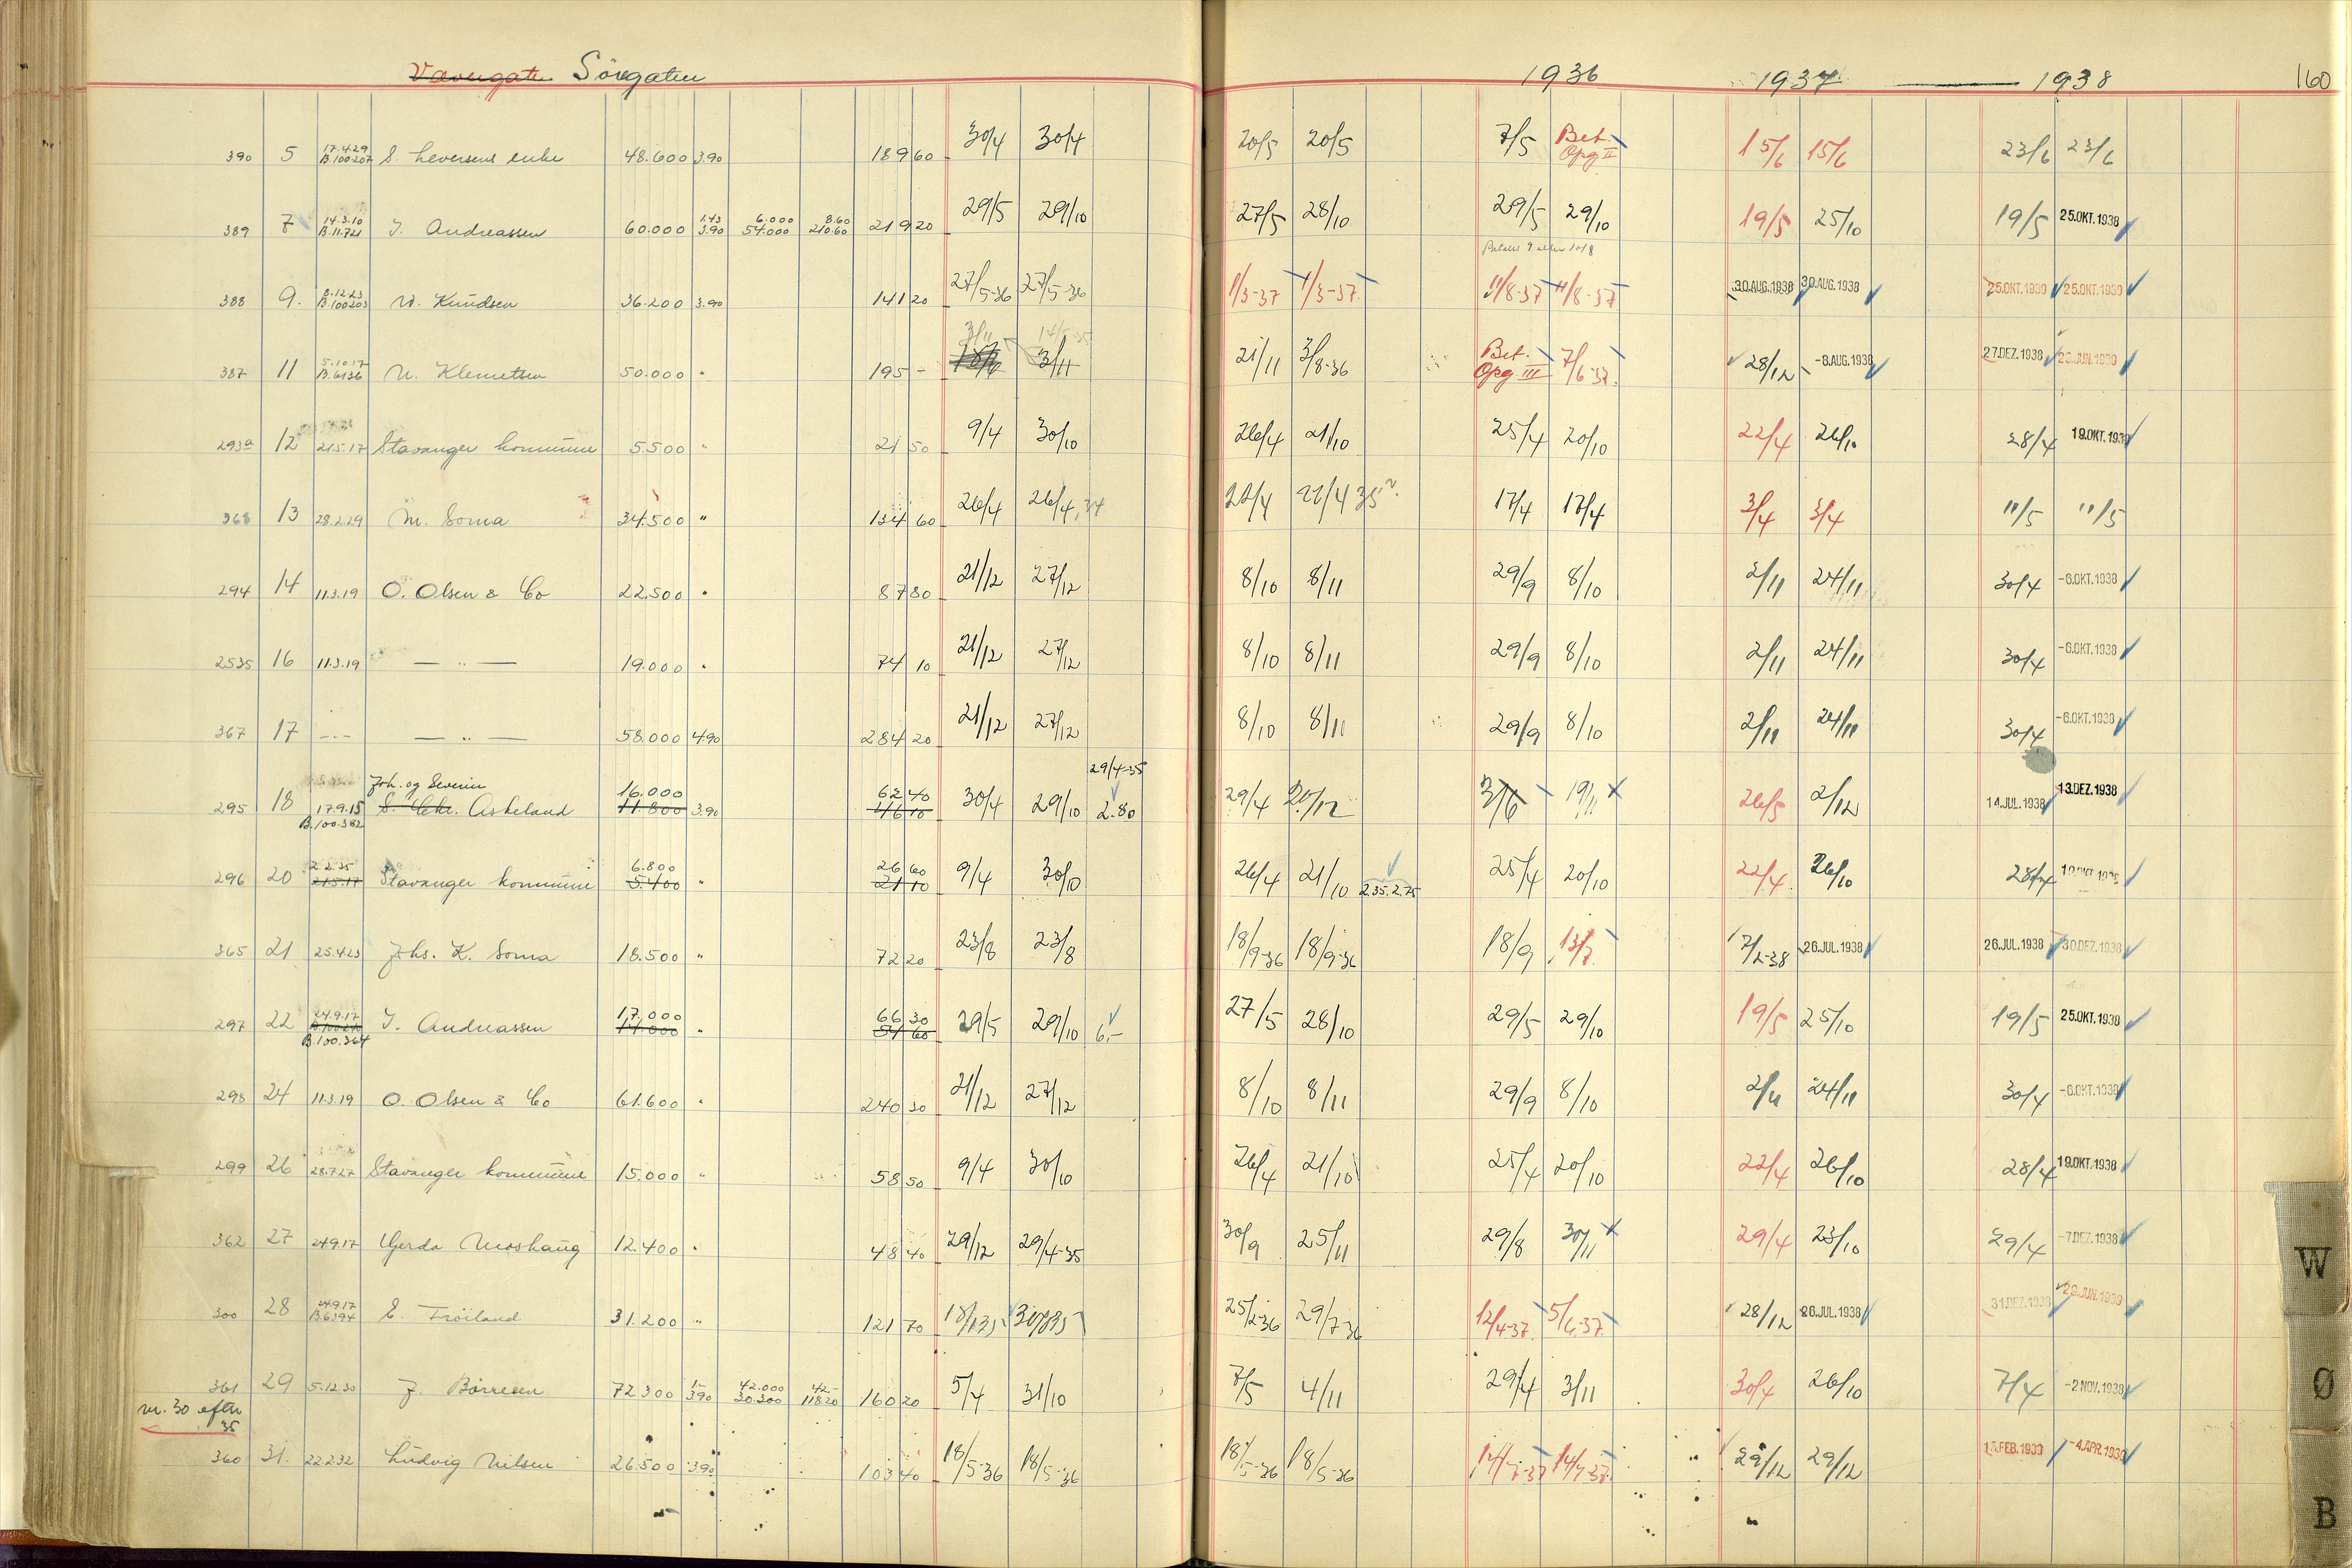 Vævergaten Sörgaten 1936 1937 1938 160
390 5 17.4.29 B.100207 S. Seversens enke 48.600 3.90 189 60 30/4 30/4 20/5 20/5 7/5 Bet. Opg II 15/6 15/6 23/6 23/6
389 7 14.3.10 B.11.721 J. Andreassen 60.000 1.43 3.90 6.000 54.000 8.60 210.60 219 20 29/5 29/10 27/5 28/10 29/5 29/10 19/5 25/10 19/5 25.OKT.1938
388 9. 8.12.23 B.100203 W. Knudsen 36.200 3.90 141 20 27/5-36 27/5-36 1/3-37 1/3-37 11/8-37 11/8-37 30.AUG.1938 30.AUG.1938 25.OKT.1939 25.OKT.1939
3/11 14/5-35
387 11 5.10.17 B.6136 N. Klemetsen 50.000 " 195 - 3/11 21/11 3/8-36 Bet. Opg. III 7/6-37. 28/12 -8.AUG.1938 27.DEZ.1938 23.JUN.1939
293a 12 21.5.17 Stavanger kommune 5.500 " 21 50 9/4 30/10 26/4 21/10 25/4 20/10 22/4 26/10 28/4 19.OKT.1938
368 13 28.2.29 M. Soma 34.500 " 134 60 26/4 26/4,34 22/4 22/4 35 17/4 17/4 3/4 3/4 11/5 11/5
294 14 11.3.19 O. Olsen & Co 22.500 " 87 80 21/12 27/12 8/10 8/11 29/9 8/10 2/11 24/11 30/4 -6.OKT.1938
2535 16 11.3.19 — " — 19.000 " 74 10 21/12 27/12 8/10 8/11 29/9 8/10 2/11 24/11 30/4 -6.OKT.1938
367 17 — " — — " — 58.000 4.90 284 20 21/12 27/12 8/10 8/11 29/9 8/10 2/11 24/11 30/4 -6.OKT.1938
Joh. og Severin 16.000 62 40 29/4-35
295 18 17.9.15 B.100.382 Askeland 11.800 3.90 46 10 30/4 29/10 2.80 29/4 20/12 3/6 19/11 x 26/5 2/12 14.JUL.1938 13.DEZ.1938
2.2.35 6.800 26 60
296 20 21.5.17 Stavanger kommune 5.400 " 21 10 9/4 30/10 26/4 21/10 2.35.2.75 25/4 20/10 22/4 26/10 28/4 19.OKT.1938
365 21 25.4.23 Johs. K. Soma 18.500 " 72 20 23/8 23/8 18/9-36 18/9-36 18/9 13/7 7/2-38 26.JUL.1938 26.JUL.1938 30.DEZ.1938
24.9.17 17.000 66 30
297 22 B.100.364 J. Andreassen 14.000 " 54 60 29/5 29/10 6,- 27/5 28/10 29/5 29/10 19/5 25/10 19/5 25.OKT.1938
298 24 11.3.19 O. Olsen & Co 61.600 " 240 30 21/12 27/12 8/10 8/11 29/9 8/10 2/11 24/11 30/4 -6.OKT.1938
299 26 28.7.27 Stavanger kommune 15.000 " 58 50 9/4 30/10 26/4 21/10 25/4 20/10 22/4 26/10 28/4 19.OKT.1938
362 27 24.9.17 Gerda Moshaug 12.400 " 48 40 29/12 29/4-35 30/9 25/11 29/8 30/11 x 29/4 23/10 29/4 -7.DEZ.1938
300 28 24.9.17 B.6394 E. Fröiland 31.200 " 121 70 25/2-36 29/7-36 12/4-37. 5/6-37. 28/12 26.JUL.1938 31.DEZ.1938 29.JUN.1939
361 29 5.12.30 J. Börresen 72.300 1.- 3.90 42.000 30.300 42.- 118.20 160 20 5/4 31/10 7/5 4/11 29/4 3/11 30/4 26/10 7/4 -2.NOV.1938
nr. 30 efter 35
360 31. 22.2.32 Ludvig Nilsen 26.500 3.90 103 40 18/5-36 18/5-36 18/5-36 18/5-36 14/7-37 14/7-37. 29/12 29/12 15.FEB.1939 -4.APR.1939
W
Ø
B